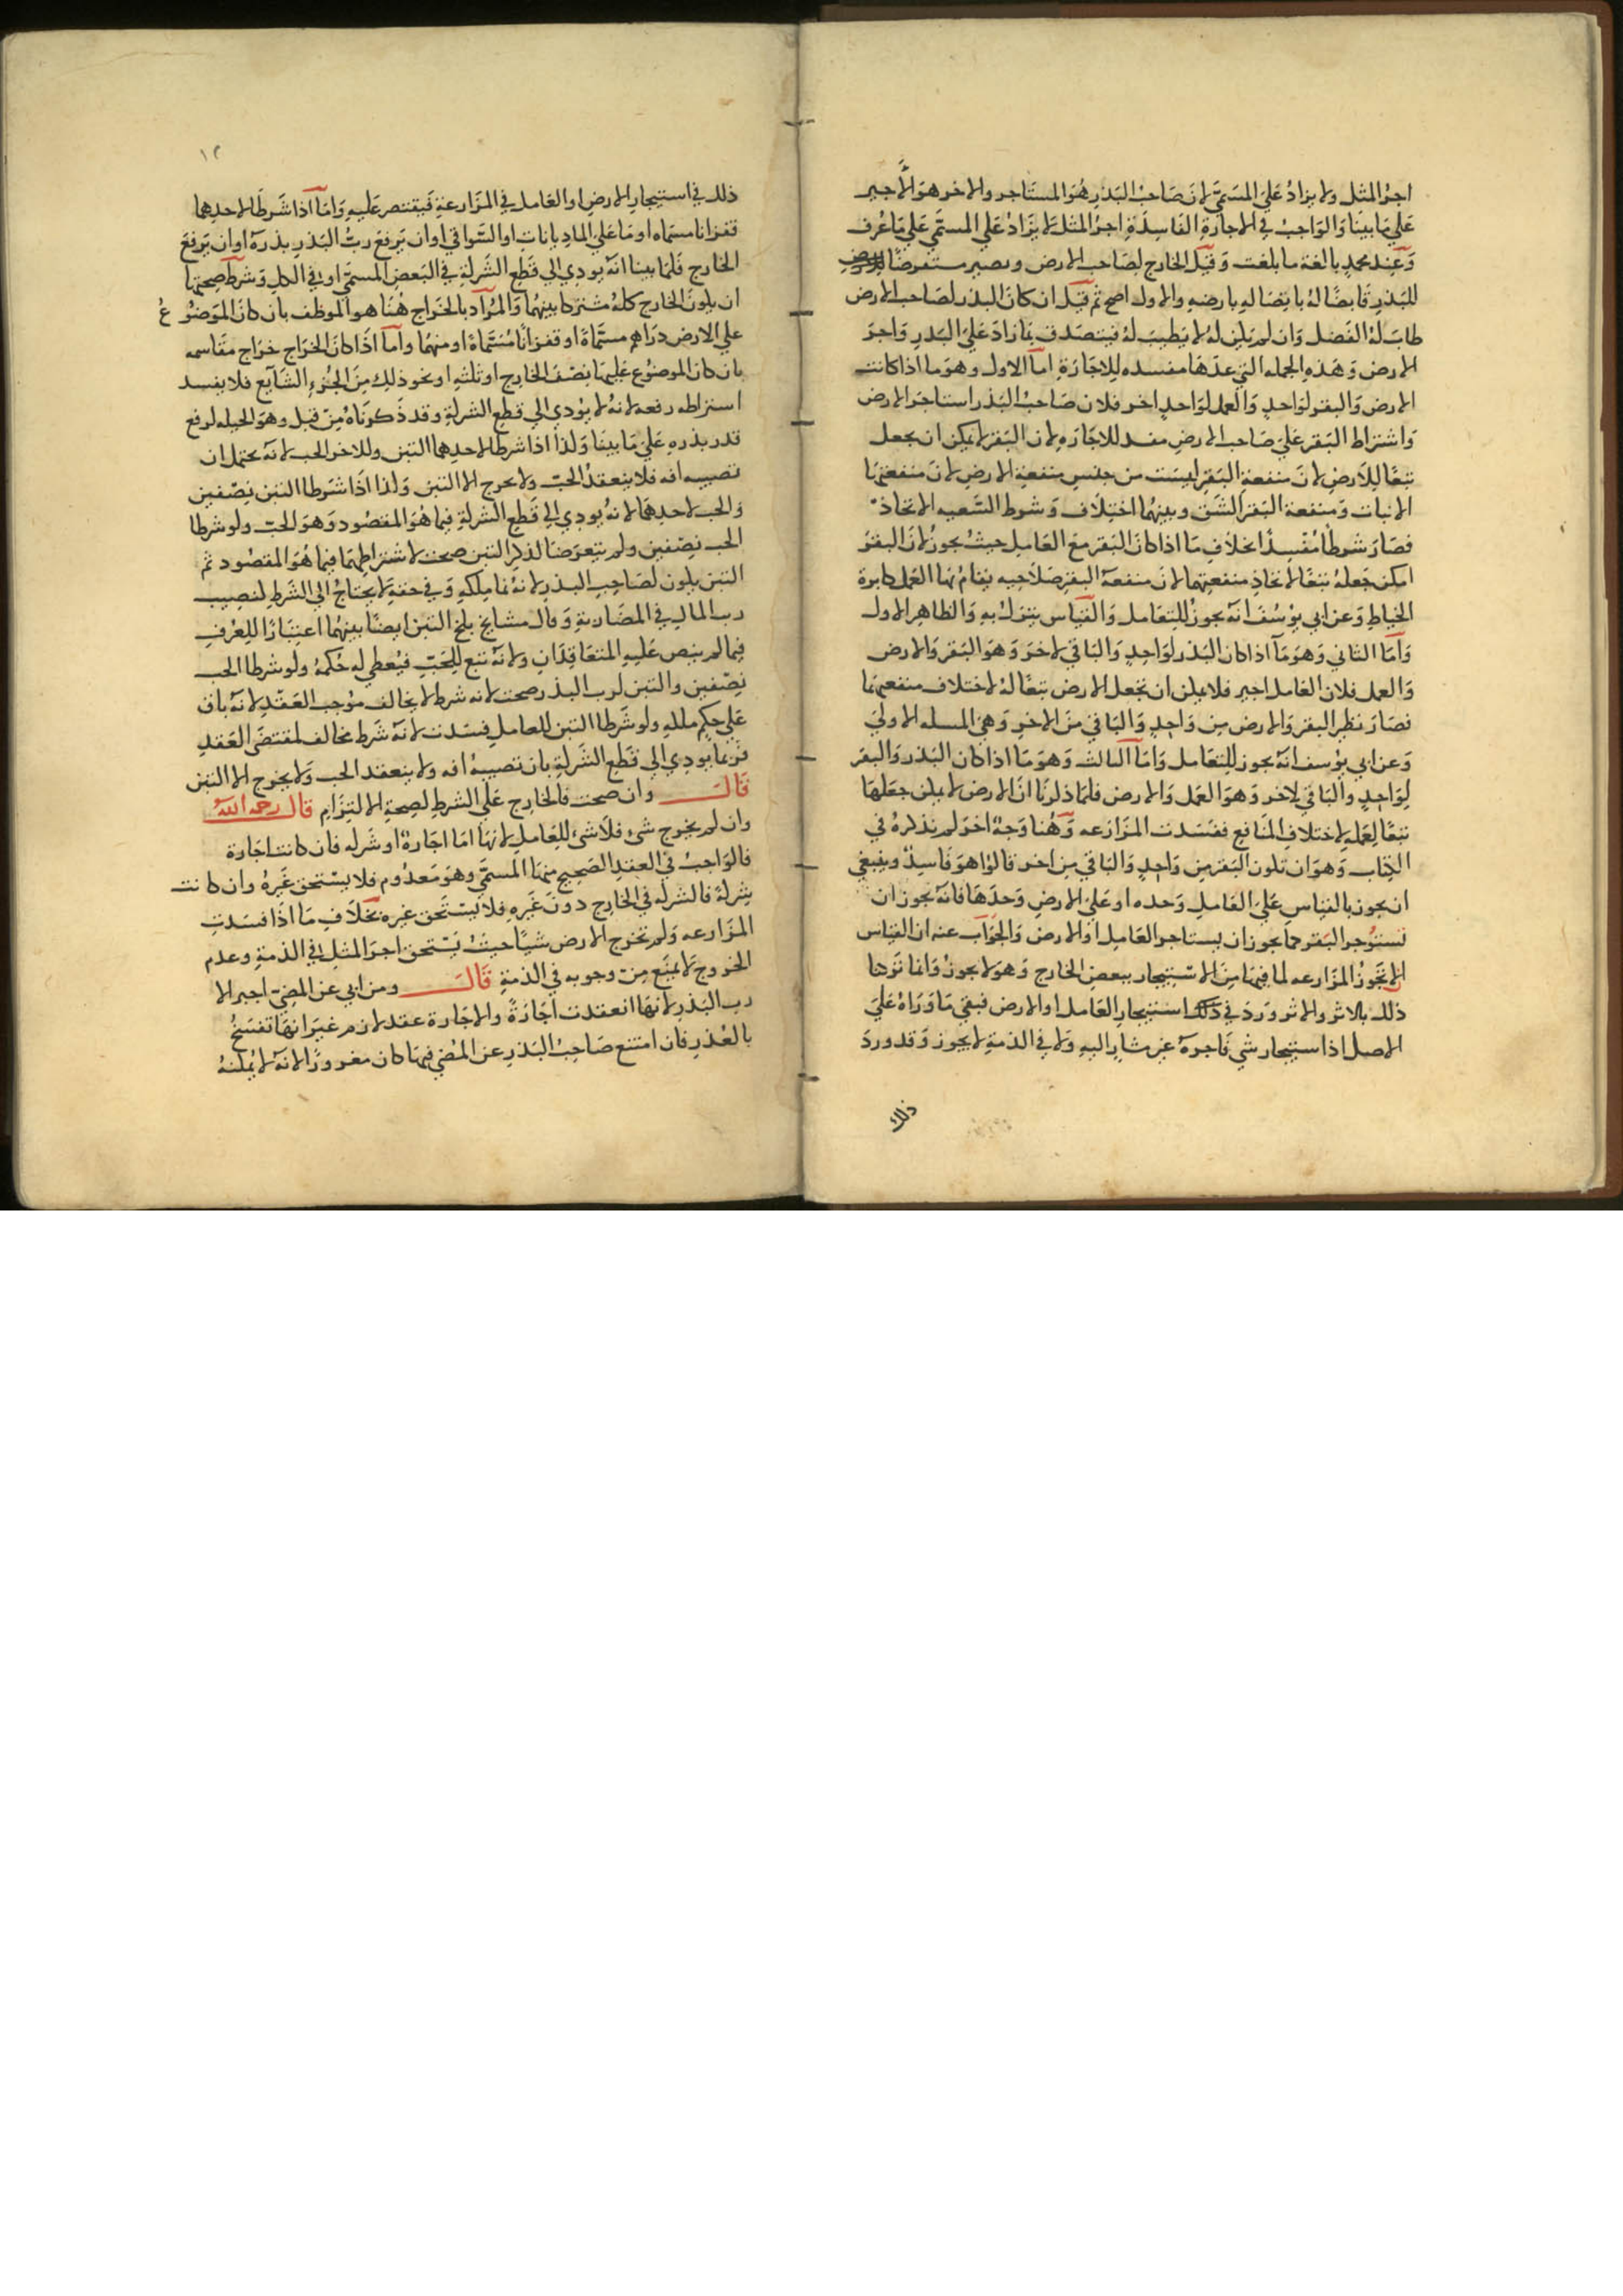 اجرُ المثل ولا يزادُ عَليَ المسَمّيَ لانَ صَاحبَ البَذرِ هُوَ المستَاجر والاخر هوَ الاَجير
عَليَ مَا بينَا وَالوَاجبْ في الاجارَةِ الفَاسِدَةِ اجرُ المثل لا يزَادُ عَلَي المسمّي عَليَ مَا عُرف
وَعِند محمدٍ بالغة ما بلغت وَقيل الخارج لصَاحب الارض ويصير مستقرضًا
للبَذرِ قابضًا لهُ باتصَالهِ بارضهِ والاول اصح ثم قيل ان كانَ البذر لصَاحب الارض
طابَ لهُ الفَضل وَان لم يكن لهُ لا يَطيبَ لهُ فيتصَدق بمَا زادَ عَليَ البَذرِ وَاجرَ
الارض وَهَذهِ الجمله التي عدهَا مفسده للاجَارَةِ امَا الاول وهوَ ما اذا كانت
الارض وَالبقر لوَاحدٍ وَالعمل لوَاحدٍ اخر فلان صَاحبُ البَذر استاجرَ الارض
وَاشتراط البَقر عَليَ صَاحب الارضِ مفسد للاجَارَهِ لان البَقرَ لا يمكن ان يجعل
تبعًا للاَرضِ لانَ منفعة البَقرِ ليسَت من جنسِ منفعةِ الارضِ لانَ منفعتهَا
الانبات وَمنفعة البَقر الشَق وبينهُما اختِلاف وَشرط التبعيه الاتحاد
فصَارَ شرطًا مُفسدًا بخلافِ مَا اذا كانَ البَقرَ مَع العَامِلِ حيث يجوزُ لانَ البقرَ
امكن جَعلهُ تبعًا لاتحادِ منفعتهما لانَ منفعة البقرِ صَلاحيه يقامُ بهَا العَمل كابرة
الخياطِ وَعن ابي يوُسُفَ انهَ يجوزُ للتعَامل وَالقيَاس يترَك بهِ وَالظاهِر الاول
وَامَا الثاني وَهوَ مَا اذا كان البَذر لوَاحِدٍ وَالبَاقي لاخرَ وَهوَ البَقر وَالارض
وَالعمل فلان العَامل اجير فلا يمكن ان تجعل الارض تبعًا لهُ لاختلاف منفعتهمَا
فصَارَ نظير البقر وَالارض من وَاحدٍ وَالبَاقي منَ الاخرِ وَهيَ المسله الاوليَ
وَعن ابي يوُسف انهَ يجوز للتعَامل وَامَا الثالث وَهوَ مَا اذا كان البَذر وَالبقر
لوَاحدٍ وَالبَاقي لاخر وَهوَ العَمل وَالارض فلمَا ذكرنَا انَ الارض لا يمكن جعَلهَا
تبعًا لعَملهِ لاختلافِ المنَافع ففسَدت المزَارَعه وَهُنا وَجهٌ اخرَ لم يَذكرهُ في
الكتِاب وَهوَ ان تكون البَقر مِن وَاحِدٍ وَالبَاقي من اخر قالوُا هوَ فَاسِدٌ وينبغي
ان يجوز بالقيَاسِ عَليَ العَاملِ وَحده او عَليَ الارضِ وَحدَهَا فانهَ يجوز ان
تستوُجر البَقر كما يجوز ان يستاجر العَامِل او الارض وَالجوَاب عنه ان القياس
ان لا تجَوُز المزَارعه لما فيهَا منَ الاستئِجار ببعض الخارج وَهوَ لا يجوزُ وَانما تركنا
ذلك بالاثر والاثر وَردَ في استئِجارِ العَامل او الارض فبقيَ مَا وَرَاهُ عَليَ
الاصل اذا ستيجار شي بَاجرة غير مشار اليهِ وَلا في الذمةِ لا يجوز وَقد وردَ
ذلك
١٢
ذلك في استئجارِ الارضِ او العَامل في المزَارعةِ فيَقتصر عَليهِ وَامَا اذا شَرطا لاحدِهما
قفزانا مسمَاه او مَا عَلي الماذيانات او السَّواقي او ان يَرفعَ ربُّ البَذرِ بذره او ان يَرفعَ
الخارج فَلمَا بينا انهَ يودي الي قَطع الشركةِ في البَعض المسمّي او في الكل وَشرط صحتها
ان يكونَ الخارج كلهُ مشتركا بينهُما وَالمرُاد بالخَراج هُنَا هو الموَظف بان كانَ الموَضوُعُ
علي الارض درَاهِم مسمّاةً او قفزانًا مُسَمَّاةً او منهُما وَامَا اذَا كانَ الخَراج خرَاج مقَاسمه
بان كان الموضوُع عَليهَا نصفَ الخارِج او ثلثهِ او نحو ذلِك مِنَ الجُزءِ الشَايِع فلا يفسد
اشتراطه رفعه لانهُ لا يؤدي الي قطع الشركةِ وقد ذَكرنَاهُ مِن قَبل وهوَ الحيله لرفعِ
قدر بذرهِ عَليَ مَا بينَا وَكذا اذا شرطا لاحدِهما التبن وللاخر الحب لانهَ يحتمل ان
تصيبه افه فلا ينعقدُ الحبّ ولا يخرج الا التبن وَكذا اذَا شَرَطا التبن نِصفين
وَالحب لاحدِهَما لانهُ يودي الي قَطع الشركةِ فيما هُوَ المقصُود وَهوَ الحبّ ولو شرطا
الحب نصِفينِ ولم يتعرضَا لذكرِ التبن صحت لاشتراطِهِمَا فيما هُوَ المقصُود ثم
التبن يكون لصَاحِبِ البذر لانهُ نمَا ملكهِ وَفي حقهِ لا يحتاجُ الي الشَرطِ لنصِيب
رب المالِ في المضَاربةِ وَقال مشايخ بلخ التبن ايضًا بينهُما اعتبَارًا للعُرفِ
فيما لم ينص عَليهِ المتعَاقِدَانِ ولانهَ تبع للحَبِّ فيُعطي له حُكمهُ ولو شرطا الحب
نِصفين والتبن لرب البذر صحت لانه شرط لا يخالف موُجب العَقدِ لانهَ باق
عَلي حكم ملكهِ ولو شَرطا التبن للعاملِ فسَدت لانهَ شَرط مخالف لمقتضَي العَقدِ
فرُبما يودِي الي قَطع الشَركةِ بان تصيبهُ افه ولا ينعقد الحب وَلا يخرج الا التبن
قَالَ وان صحت فالخارِج عَلَي الشرطِ لصِحةِ الالتِزَامِ قال رحمه الله
وان لم يخرج شئ فلاَ شئَ للعَاملِ لانهَا امَا اجَارةُ او شَركه فان كانت اجَارة
فالوَاجبُ في العقدِ الصَحِيحِ منهَا المسمّي وهوَ مَعدُوم فلا يستحق غَيرهُ وان كانت
شركةً فالشركه في الخارِج دونَ غَيرهِ فلاَ يستحَق غيره بخلَافِ مَا اذَا فسَدتِ
المزَارعه وَلم تخرج الارض شيًا حيثُ يَستحق اجرَ المثلِ في الذمةِ وعدم
الخروج لا يمنَع مِن وجوبه في الذمةِ قَالَ ومن ابي عن المضيّ اجبر الا
رب البَذرِ لانهَا انعقدت اجَارَةً والاجَارة عقد لازم غيرَ انهَا تفسَخُ
بالعُذرِ فان امتنع صَاحِبُ البَذرِ عن المُضي فيهَا كان مغرورًا لانهَ لا يُمكنهُ